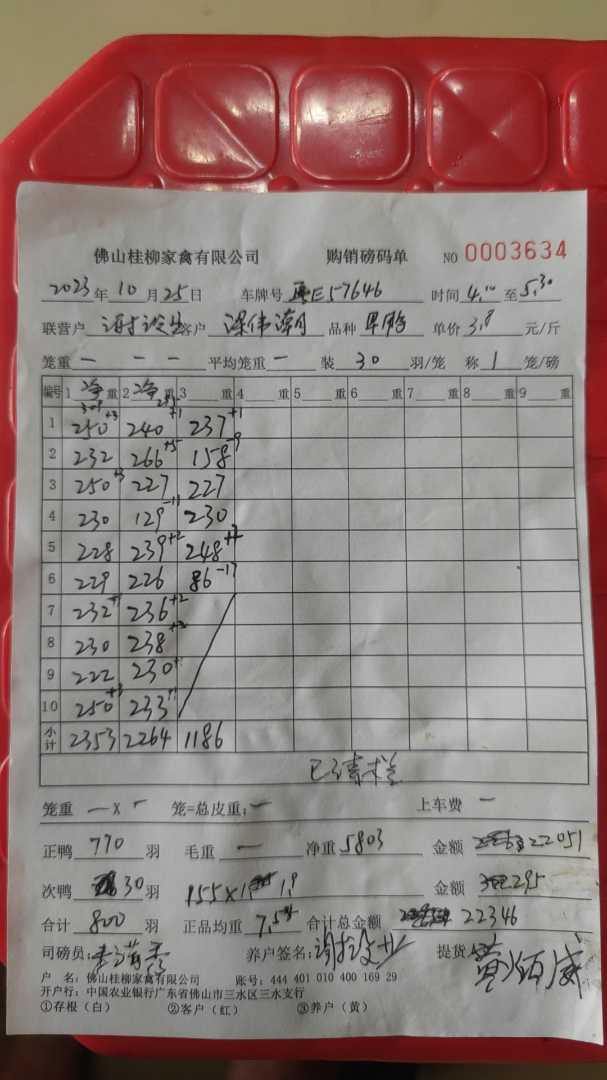 佛山桂柳家禽有限公司 购销磅码单 NO 0003634
2023年10月25日 车牌号 E57646 时间4.10至5.30
联营户 客户 梁伟潮 品种 单价3.8元/斤
笼重 — — — 平均笼重 — 装 30 羽/笼 称 1 笼/磅
编号 1 净重 2 净重 3 重 4 重 5 重 6 重 7 重 8 重 9 重
1 250+3 240+1 237+1
2 232 266+5 158-9
3 250+3 227 227
4 230 129-11 230
5 228 239+2 248
6 229 226 86-17
7 232 236+2
8 230 238
9 222 230
10 250+3 233
小计 2353 2264 1186
笼重 —x 笼=总皮重: — 上车费 —
正鸭 770 羽 毛重 — 净重 5803 金额 22051
次鸭 30羽 155x1.9 金额 295
合计 800 羽 正品均重 7.54 合计总金额 22346
司磅员: 养户签名: 提货人:
户 名: 佛山桂柳家禽有限公司 账号: 444 401 010 400 169 29
开户行: 中国农业银行广东省佛山市三水区三水支行
①存根（白） ②客户（红） ③养户（黄）